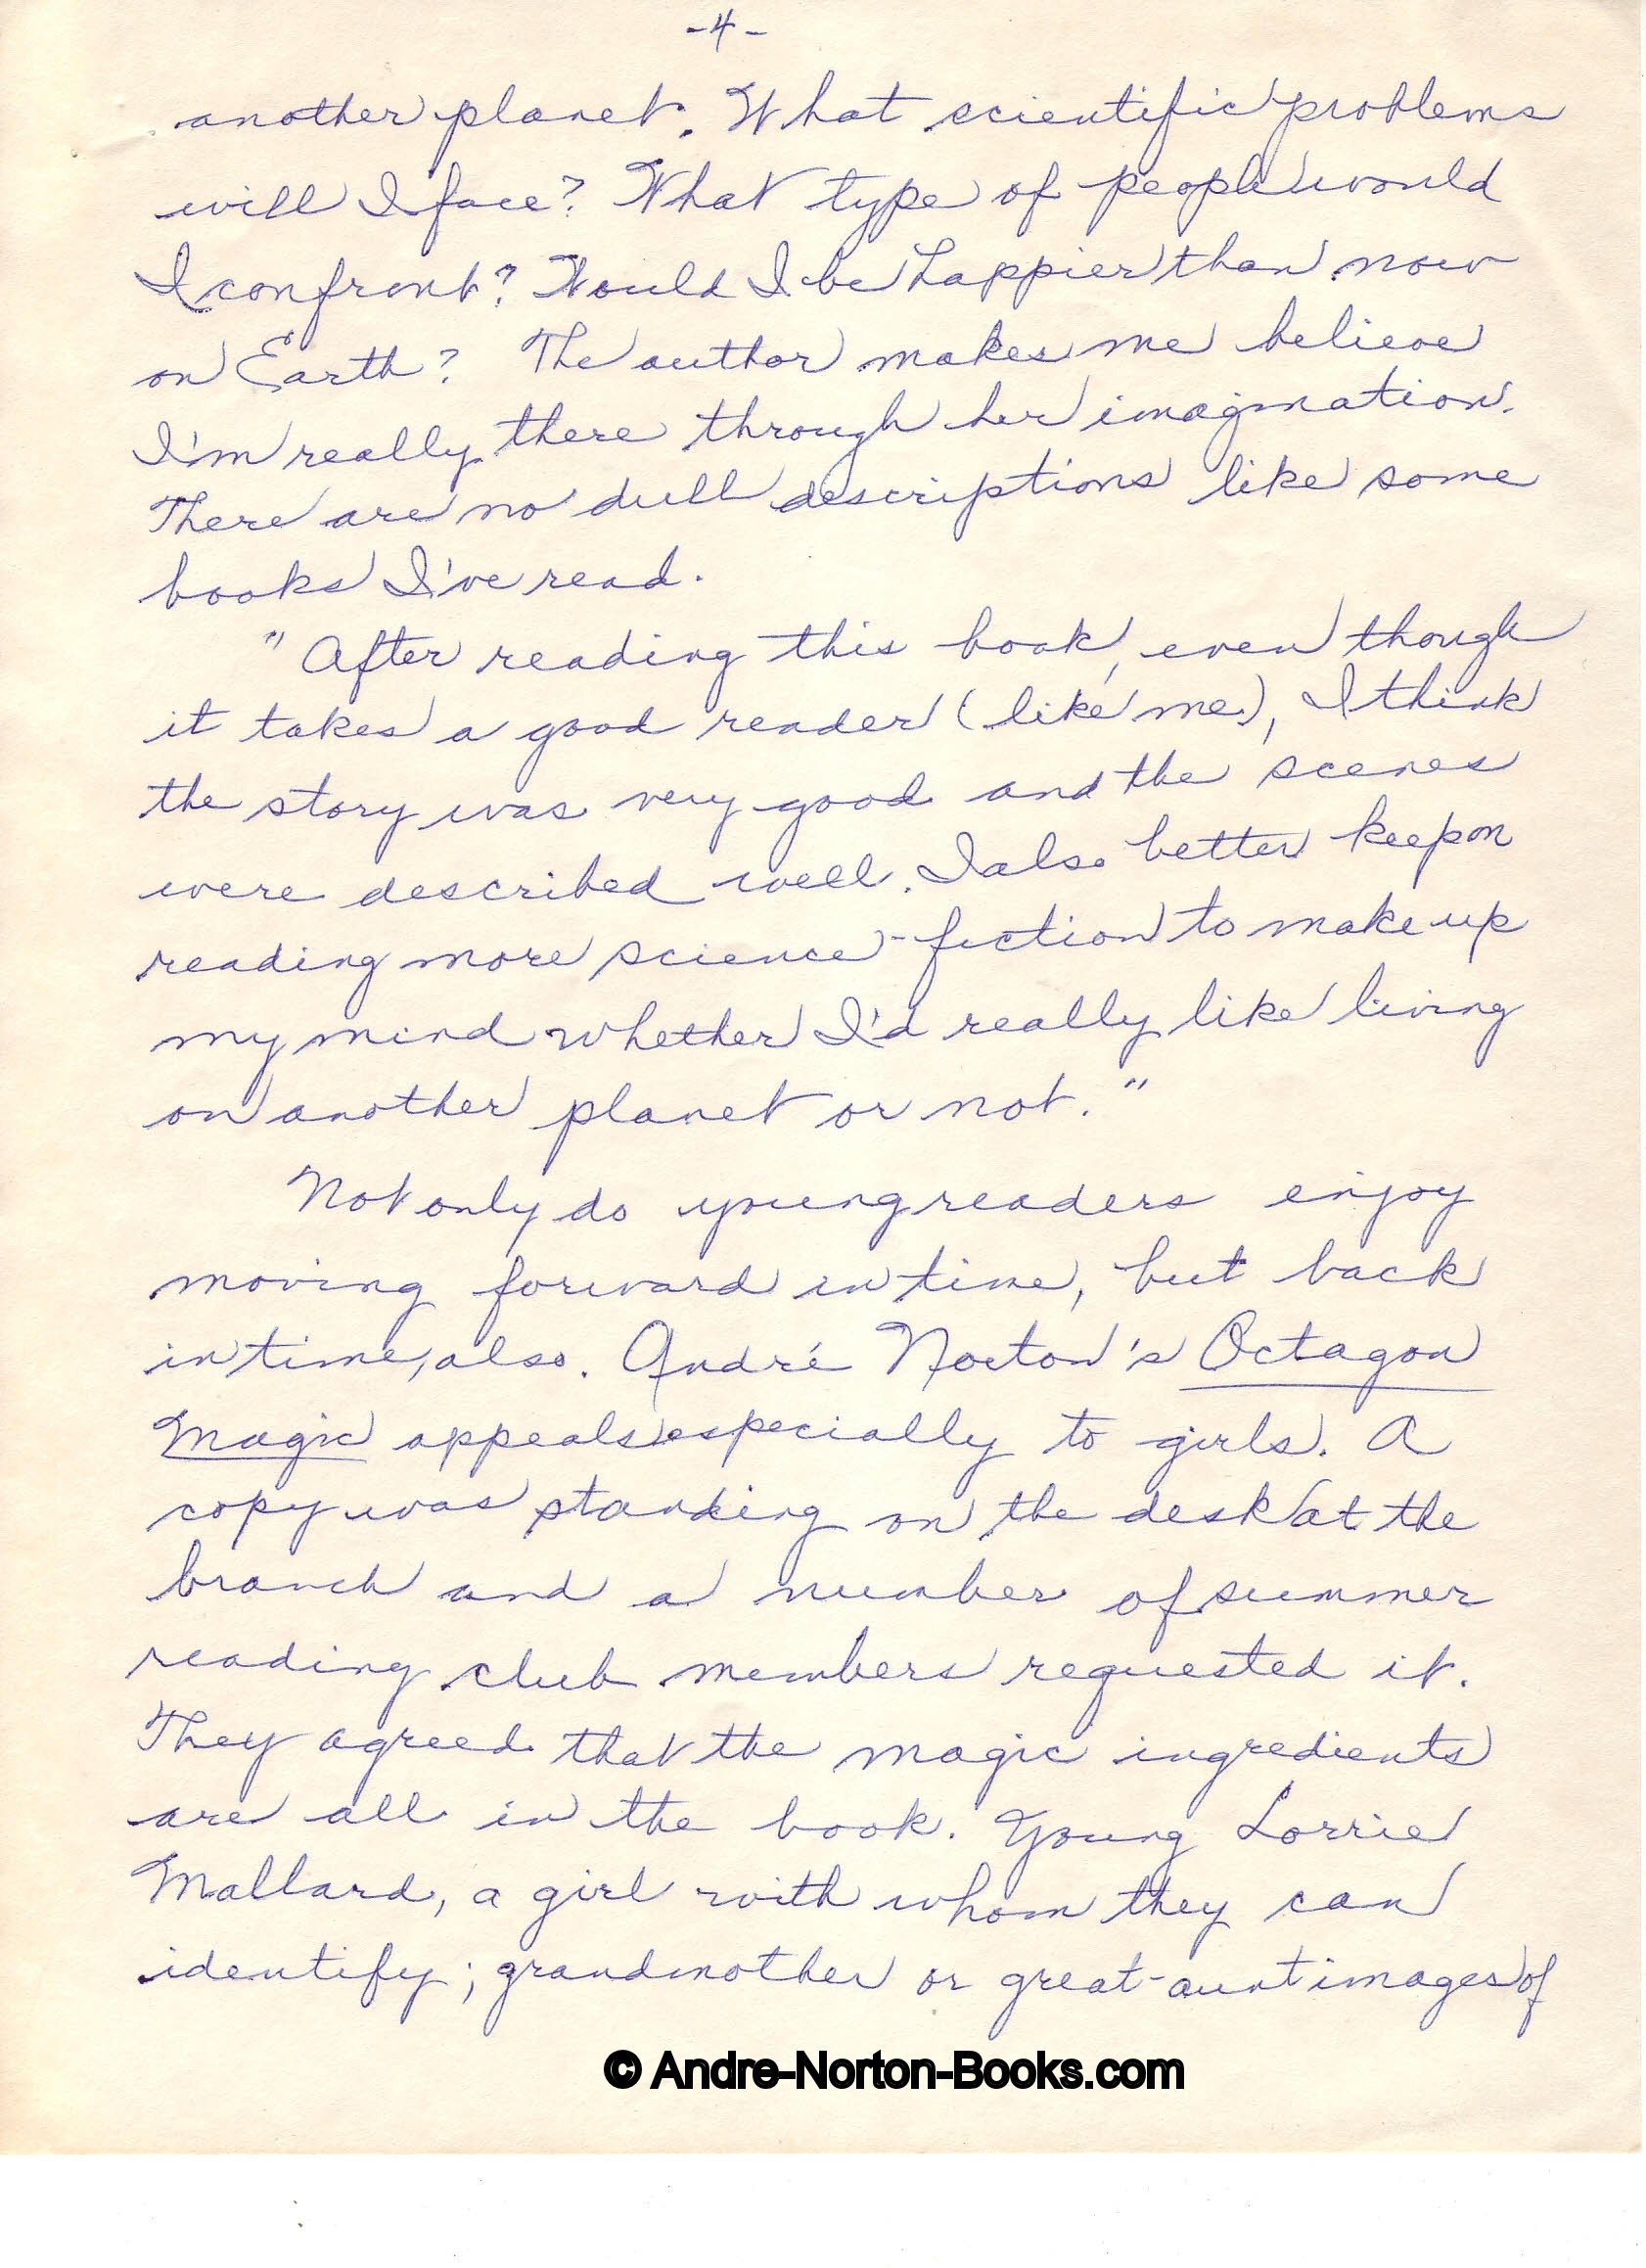 -4-
another planet. What scientific problems
will I face? What type of people would
I confront? Would I be happier than now
on Earth? The author makes me believe
I'm really there through her imagination.
There are no dull descriptions like some
books I've read.
"After reading this book, even though
it takes a good reader (like me), I think
the story was very good and the scenes
were described well. I also better keep on
reading more science-fiction to make up
my mind whether I'd really like living
on another planet or not."
Not only do young readers enjoy
moving forward in time, but back
in time, also. André Norton's Octagon
Magic appeals especially to girls. A
copy was standing on the desk at the
branch and a number of summer
reading club members requested it.
They agreed that the magic ingredients
are all in the book. Young Lorrie
Mallard, a girl with whom they can
identify; grandmother or great-aunt images of
© Andre-Norton-Books.com